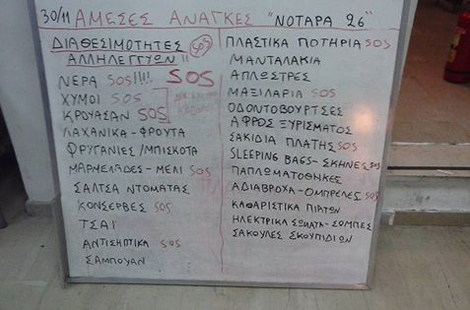 30/11 ΑΜΕΣΕΣ ΑΝΑΓΚΕΣ "ΝΟΤΑΡΑ 26"
ΔΙΑΘΕΣΙΜΟΤΗΤΕΣ
ΑΛΛΗΛΕΓΓΥΩΝ!!
ΝΕΡΑ SOS!!!! SOS
ΧΥΜΟΙ SOS
ΚΡΟΥΑΣΑΝ SOS
ΛΑΧΑΝΙΚΑ - ΦΡΟΥΤΑ
ΦΡΥΓΑΝΙΕΣ / ΜΠΙΣΚΟΤΑ
ΜΑΡΜΕΛΑΔΕΣ - ΜΕΛΙ SOS
ΣΑΛΤΣΑ ΝΤΟΜΑΤΑΣ
ΚΟΝΣΕΡΒΕΣ SOS
ΤΣΑΪ
ΑΝΤΙΣΗΠΤΙΚΑ SOS
ΣΑΜΠΟΥΑΝ
ΠΛΑΣΤΙΚΑ ΠΟΤΗΡΙΑ SOS
ΜΑΝΤΑΛΑΚΙΑ
ΑΠΛΩΣΤΡΕΣ
ΜΑΞΙΛΑΡΙΑ SOS
ΟΔΟΝΤΟΒΟΥΡΤΣΕΣ
ΑΦΡΟΣ ΞΥΡΙΣΜΑΤΟΣ
ΣΑΚΙΔΙΑ ΠΛΑΤΗΣ SOS
SLEEPING BAGS - ΣΚΗΝΕΣ SOS
ΠΑΠΛΩΜΑΤΟΘΗΚΕΣ
ΑΔΙΑΒΡΟΧΑ - ΟΜΠΡΕΛΕΣ SOS
ΚΑΘΑΡΙΣΤΙΚΑ ΠΙΑΤΩΝ
ΗΛΕΚΤΡΙΚΑ ΣΩΜΑΤΑ - ΣΟΜΠΕΣ
ΣΑΚΟΥΛΕΣ ΣΚΟΥΠΙΔΙΩΝ